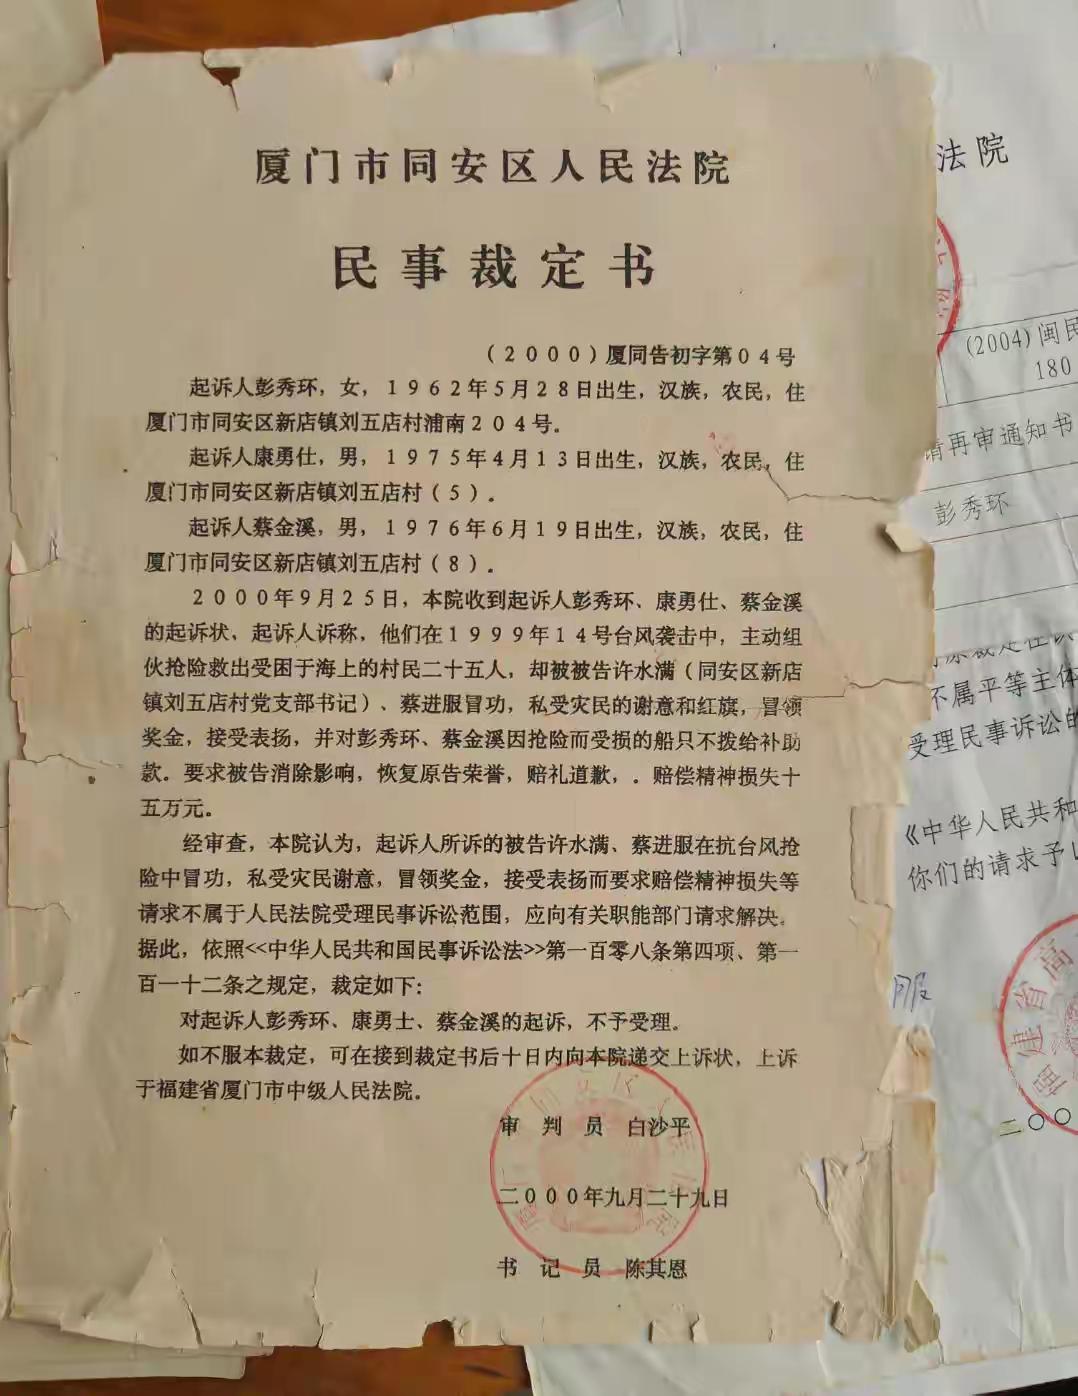 厦门市同安区人民法院
民事裁定书
（２０００）厦同告初字第０４号
起诉人彭秀环，女，１９６２年５月２８日出生，汉族，农民，住
厦门市同安区新店镇刘五店村浦南２０４号。
起诉人康勇仕，男，１９７５年４月１３日出生，汉族，农民，住
厦门市同安区新店镇刘五店村（５）。
起诉人蔡金溪，男，１９７６年６月１９日出生，汉族，农民，住
厦门市同安区新店镇刘五店村（８）。
２０００年９月２５日，本院收到起诉人彭秀环、康勇仕、蔡金溪
的起诉状，起诉人诉称，他们在１９９９年１４号台风袭击中，主动组
伙抢险救出受困于海上的村民二十五人，却被被告许水满（同安区新店
镇刘五店村党支部书记）、蔡进服冒功，私受灾民的谢意和红旗，冒领
奖金，接受表扬，并对彭秀环、蔡金溪因抢险而受损的船只不拨给补助
款。要求被告消除影响，恢复原告荣誉，赔礼道歉，．赔偿精神损失十
五万元。
经审查，本院认为，起诉人所诉的被告许水满、蔡进服在抗台风抢
险中冒功，私受灾民谢意，冒领奖金，接受表扬而要求赔偿精神损失等
请求不属于人民法院受理民事诉讼范围，应向有关职能部门请求解决。
据此，依照<<中华人民共和国民事诉讼法>>第一百零八条第四项、第一
百一十二条之规定，裁定如下：
对起诉人彭秀环、康勇士、蔡金溪的起诉，不予受理。
如不服本裁定，可在接到裁定书后十日内向本院递交上诉状，上诉
于福建省厦门市中级人民法院。
审　判　员　白沙平
二０００年九月二十九日
书　记　员　陈其恩
法院
(2004)闽民
180
请再审通知书
彭秀环
不属平等主体
受理民事诉讼的
《中华人民共和
你们的请求予以
福建省高
二〇〇